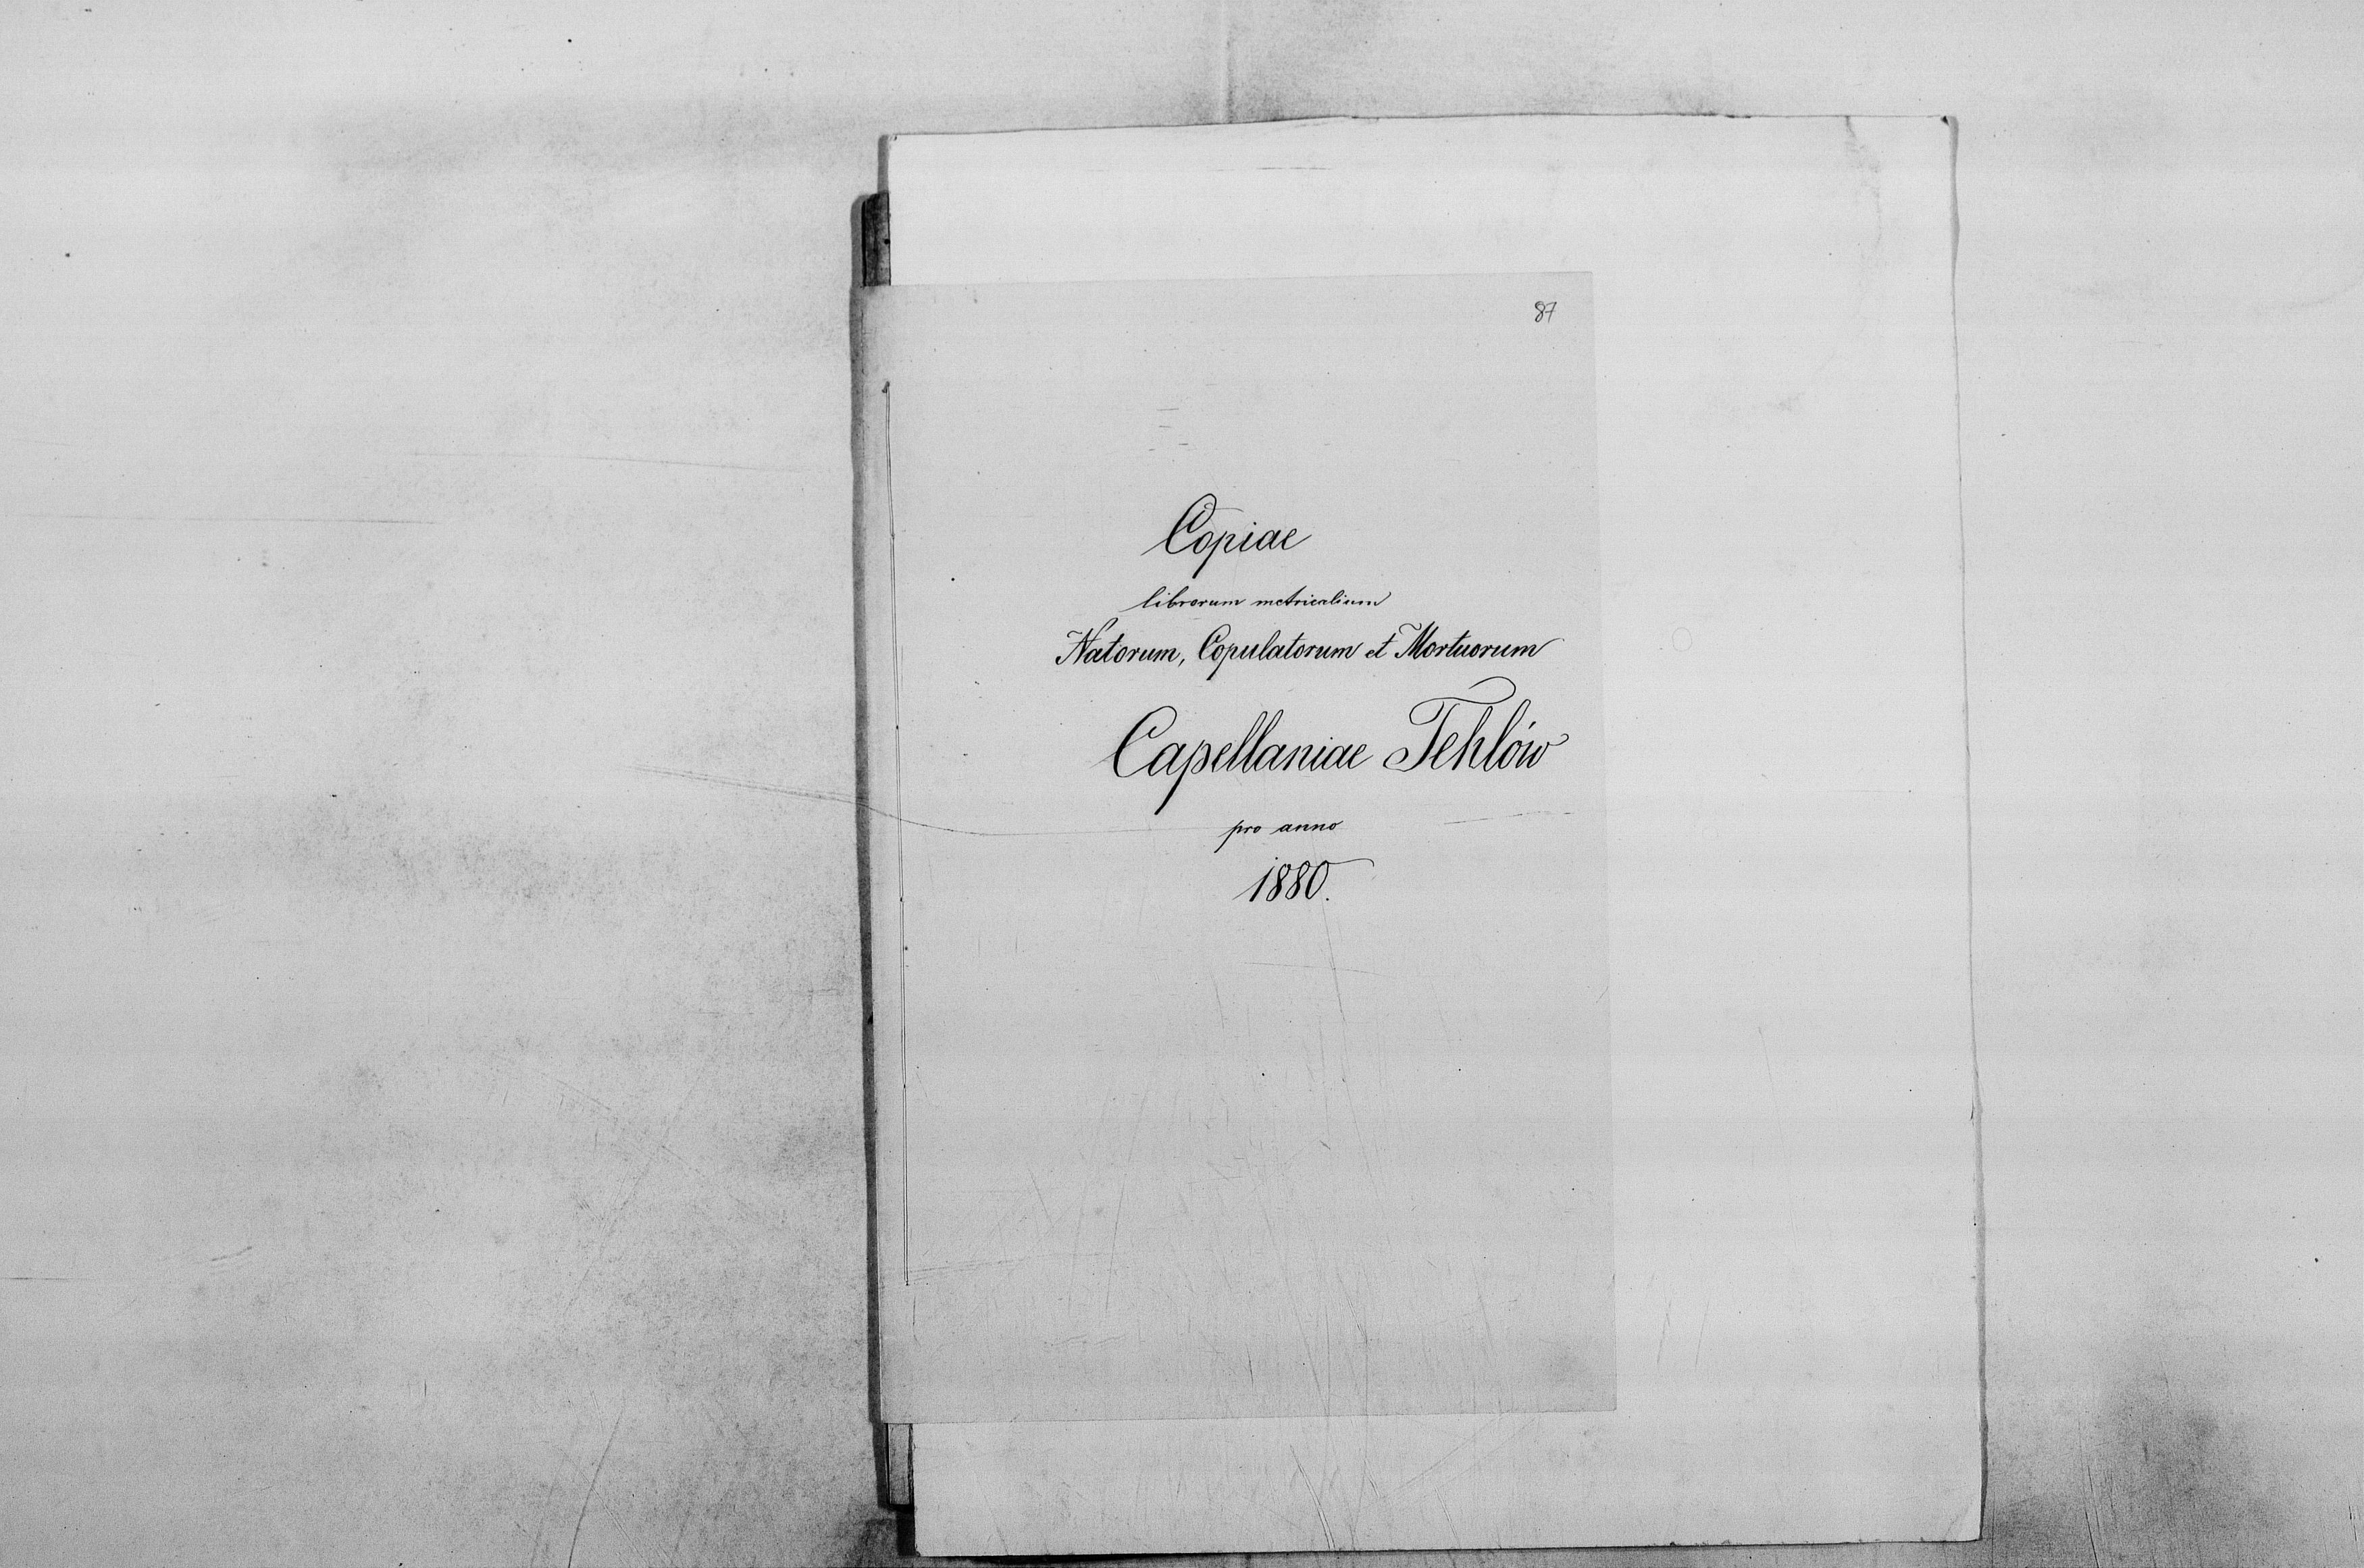 87
Copiae
librorum metricalium
Natorum, Copulatorum et Mortuorum
Capellaniae Tehlów
pro anno
1880.